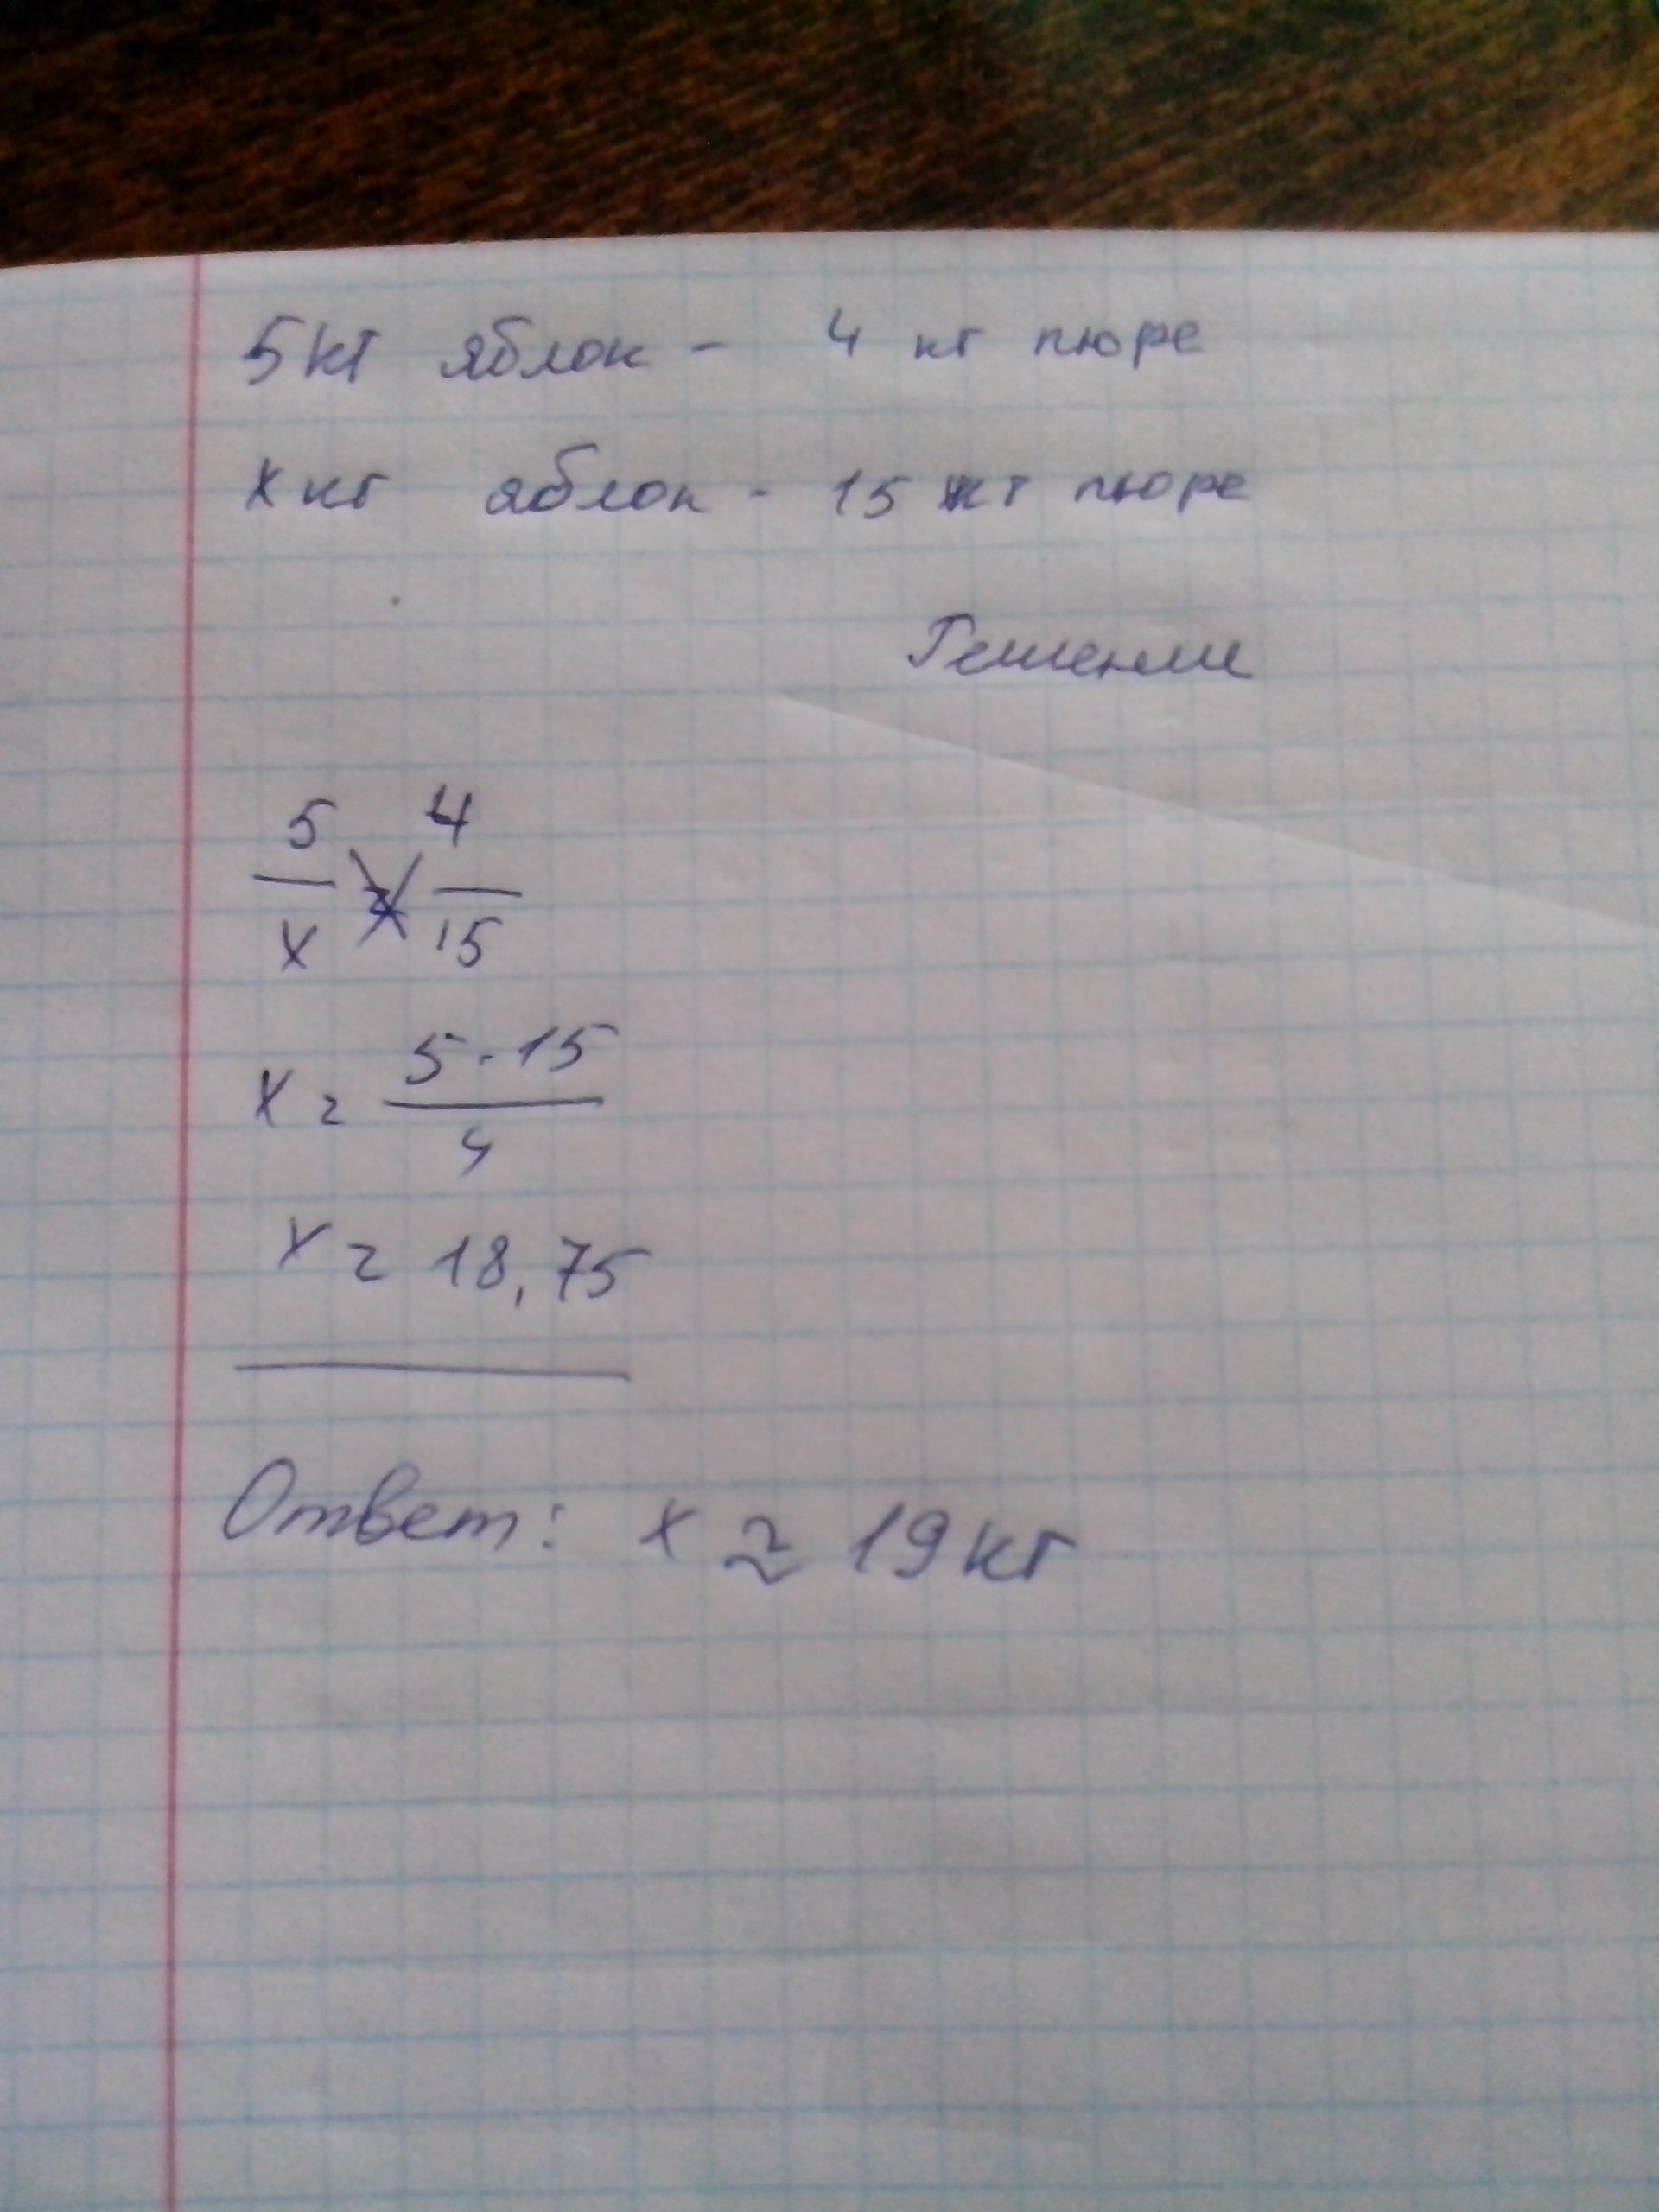 5кг яблок - 4 кг пюре
x кг яблок - 15 кг пюре
Решение
5/x = 4/15
x = 5·15/4
x = 18,75
Ответ: x ≈ 19кг